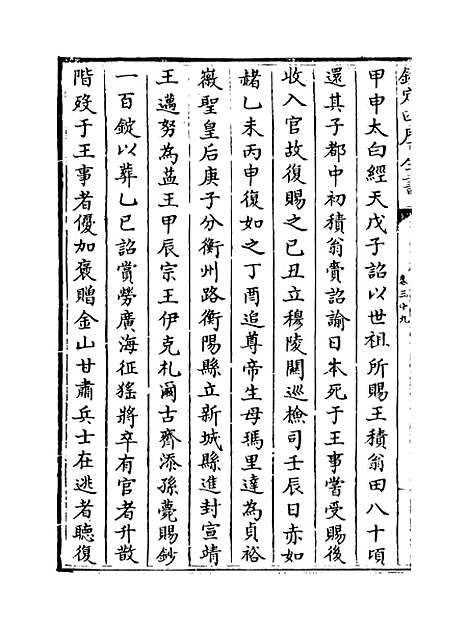 欽定四庫全書
卷三十九
甲申太白經天戊子詔以世祖所賜王積翁田八十頃
還其子都中初積翁賫詔諭日本死于王事嘗受賜後
收入官故復賜之己丑立穆陵關巡檢司壬辰日赤如
赭乙未丙申復如之丁酉追尊帝生母瑪里達為貞裕
徽聖皇后庚子分衡州路衡陽縣立新城縣進封宣靖
王邁努為益王甲辰宗王伊克札爾古齊添孫薨賜鈔
一百錠以葬乙巳詔賞勞廣海征猺將卒有官者升散
階歿于王事者優加褒贈金山甘肅兵士在逃者聽復